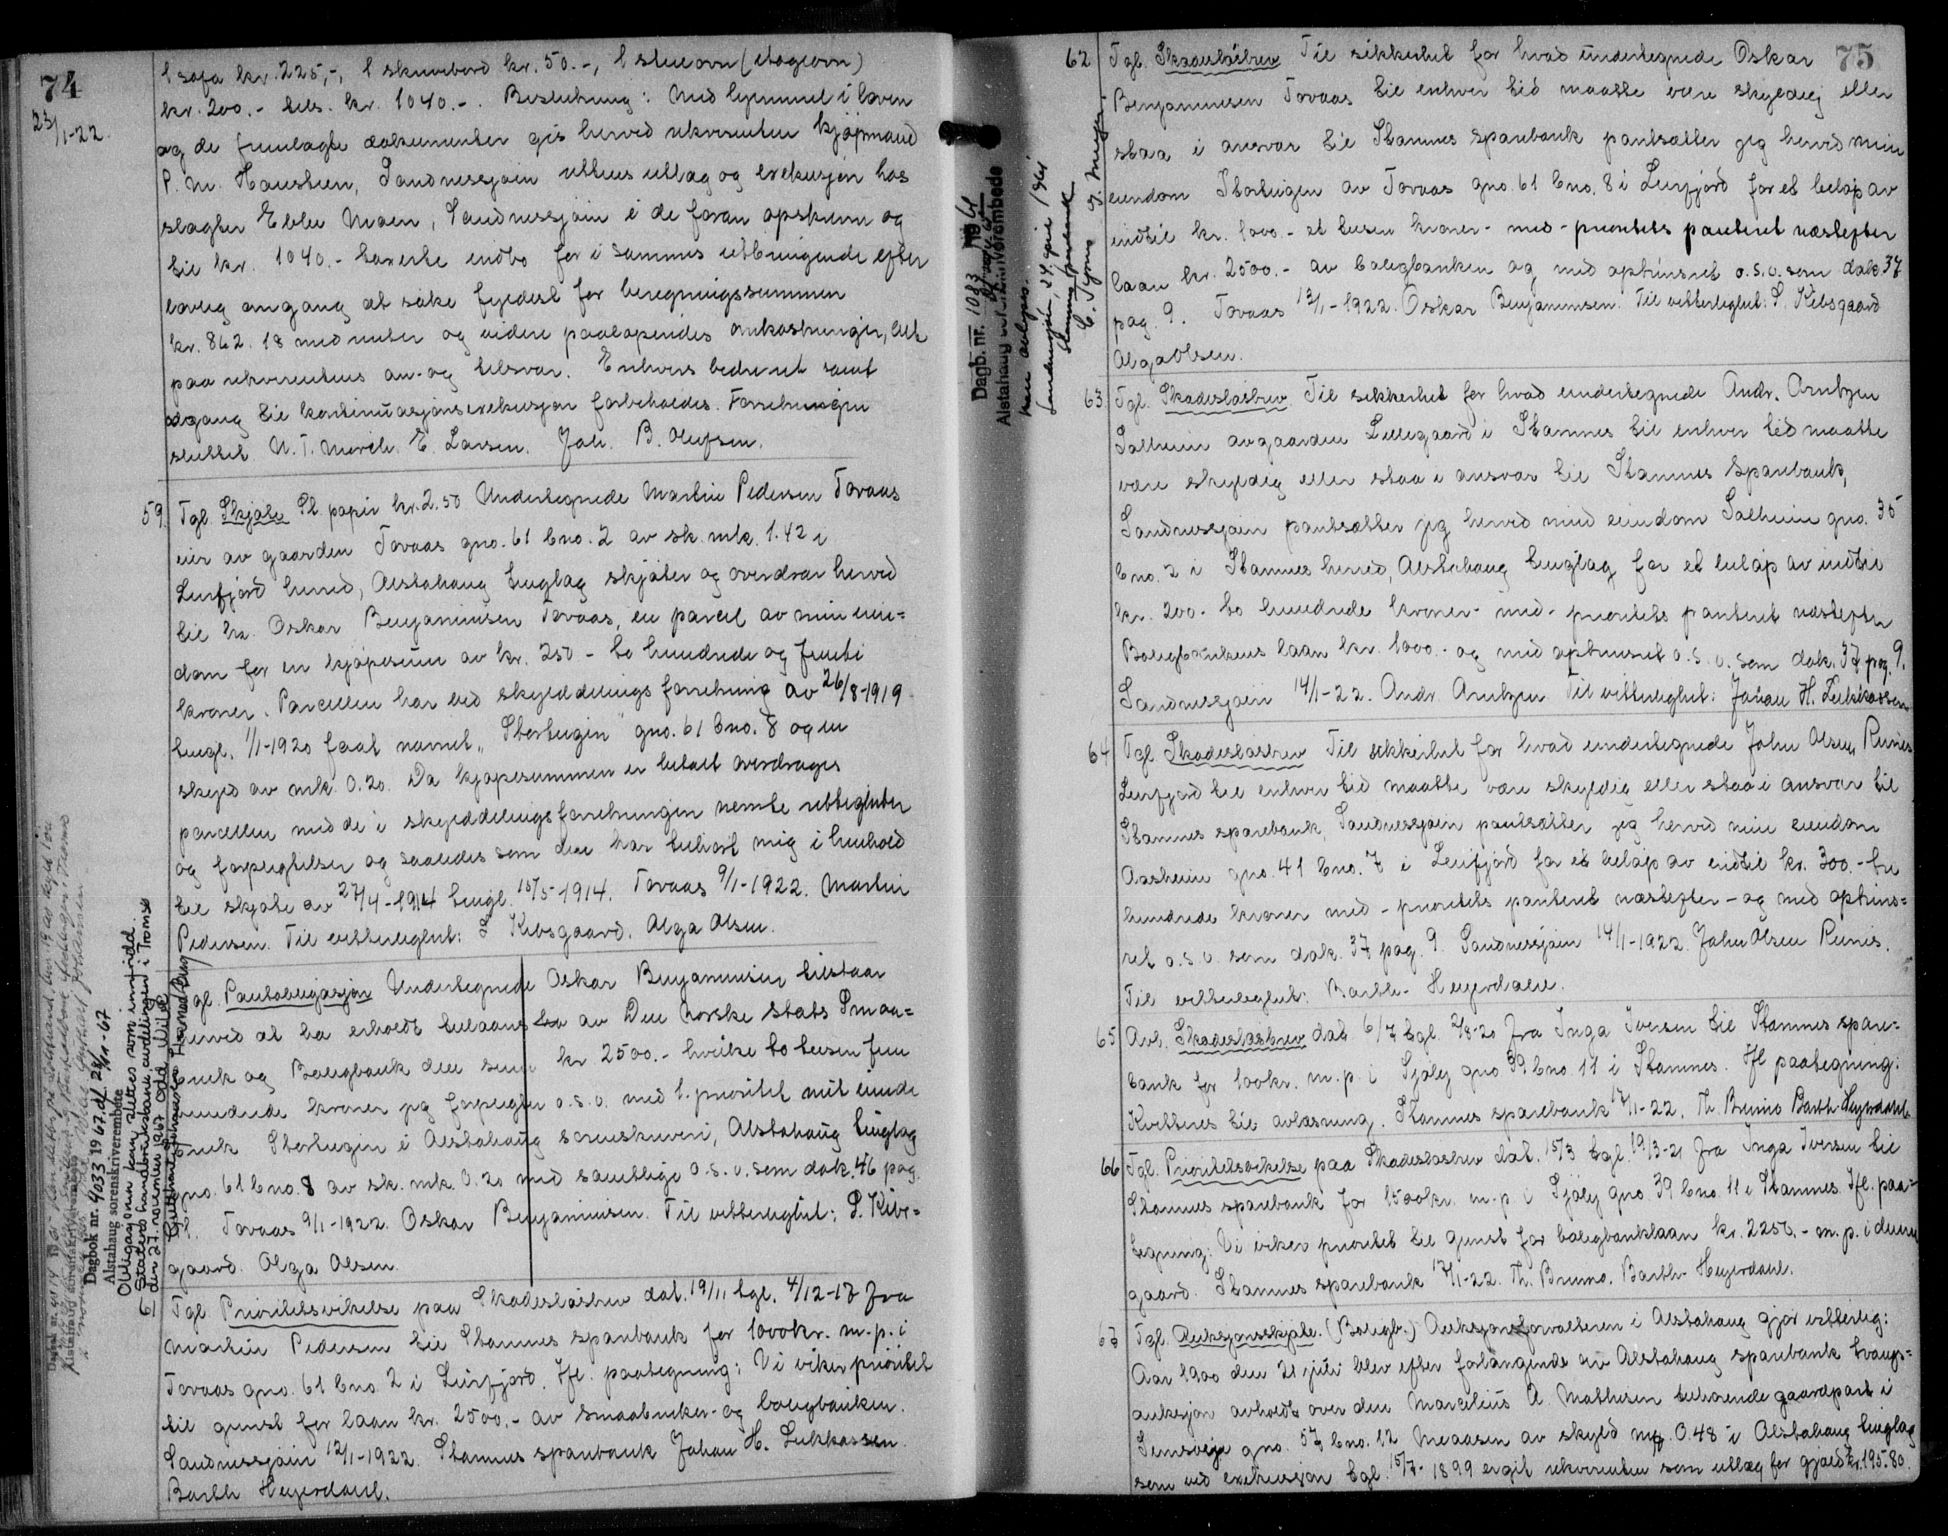 74
23/1-22.
1 sofa kr. 225,-, 1 skrivebord kr. 50.-, 1 stueovn (etageovn)
kr. 200.- tils. kr. 1040.-. Beslutning: Med hjemmel i loven
og de fremlagte dokumenter gis herved rekvirenten kjøpmand
P. M. Haustien, Sandnessjøen utlæg og exekusjon hos
slagter Moen, Sandnessjøen i de foran opskrevne og
til kr. 1040.- takserte indbo for i sammes utbringende efter
lovlig omgang at søke fyldest for beregningssummen
kr. 862.18 med renter og videre paaløpendes omkostninger, alt
paa rekvirentens an- og tilsvar. Enhvers bedre ret samt
adgang til kontinuasjonsexekusjon forbeholdes. Forretningen
sluttet. E. Larsen. Joh. B. Olufsen.
59. Tgl. Skjøte St. papir kr. 2.50 Undertegnede Martin Pedersen Tovaas
eier av gaarden Tovaas gno. 61 bno. 2 av sk. mk. 1.42 i
Leirfjord herred, Alstahaug tinglag skjøter og overdrar herved
til hr. Oskar Benjaminsen Tovaas, en parcel av min eien-
dom for en kjøpesum av kr. 250 - to hundrede og femti
kroner. Parcellen har ved skylddelingsforretning av 26/8-1919
tingl. 1/1-1920 faat navnet „Storteigen" gno. 61 bno. 8 og en
skyld av mk. 0.20. Da kjøpesummen er betalt overdrages
parcellen med de i skylddelingsforretningen nevnte rettigheter
og forpligtelser og saaledes som den har tilhørt mig i henhold
til skjøte av 27/4-1914 tingl. 15/5-1914. Tovaas 9/1-1922. Martin
Pedersen. Til vitterlighet: S. Kibsgaard. Olga Olsen.
Tgl. Pantobligasjon Undertegnede Oskar Benjaminsen tilstaar
herved at ha erholdt tilaans av Den Norske Stats Smaa-
bruk og Boligbank den sum kr 2500.- hvilke to tusen fem
hundrede kroner jeg forpligter o.s.v. med 1. prioritet mit eiende
bruk Storteigen i Alstahaug sorenskriveri, Alstahaug tinglag
gno. 61 bno. 8 av sk. mk. 0.20 med samtlige o.s.v. som dok. 46 pag.
Tovaas 9/1-1922. Oskar Benjaminsen. Til vitterlighet: S. Kibs-
gaard. Olga Olsen.
61 Tgl. Prioritetsvikelse paa Skadesløsbrev dat. 19/11 tgl. 4/12-17 fra
Martin Pedersen til Stamnes sparebank for 1000 kr. m. p. i
Tovaas gno. 61 bno. 2 i Leirfjord. Ifl. paategning: Vi viker prioritet
til gunst for laan kr. 2500.- av Smaabruker- og boligbanken.
Sandnessjøen 12/1-1922. Stamnes sparebank Johan H. Lukkassen.
Barth Heyerdahl.
Dagbok nr. 4033 1967 d/ 28/11-67
Alstahaug sorenskriverembete
Obligasjonen kan slettes som innfridd.
Statens handbruksbank avdelingen i Tromsø
den 27. november 1967 Odd
75
Dagb. nr. 1033 1961
Alstahaug sorenskriverembede
Kan avlyses.
Sandnessjøen, 24. april 1961
Stamnes sparebank
62 Tgl. Skadesløsbrev Til sikkerhet for hvad undertegnede Oskar
Benjaminsen Tovaas til enhver tid maatte være skyldig eller
staa i ansvar til Stamnes sparebank pantsætter jeg herved min
eiendom Storteigen av Tovaas gno. 61 bno. 8 i Leirfjord for et beløp av
indtil kr. 1000.- et tusen kroner - med - prioritets panteret næstefter
laan kr. 2500.- av boligbanken og med optrinsret o.s.v. som dok. 37
pag. 9. Tovaas 12/1-1922. Oskar Benjaminsen. Til vitterlighet: S. Kibsgaard
Olga Olsen.
63. Tgl. Skadesløsbrev. Til sikkerhet for hvad undertegnede Andr. Arntzen
Solheim av gaarden Lillegaard i Stamnes til enhver tid maatte
være skyldig eller staa i ansvar til Stamnes Sparebank,
Sandnessjøen pantsætter jeg herved min eiendom Solheim gno. 35
bno. 2 i Stamnes herred, Alstahaug tinglag for et beløp av indtil
kr. 200.- to hundrede kroner - med - prioritets panteret næstefter
Boligbankens laan kr. 1000.- og med optrinsret o.s.v. som dok. 37 pag. 9.
Sandnessjøen 14/1-22. Andr. Arntzen Til vitterlighet: Johan H. Lukkassen
64 Tgl. Skadesløsbrev Til sikkerhet for hvad undertegnede John Olsen Reines
Leirfjord til enhver tid maatte være skyldig eller staa i ansvar til
Stamnes sparebank, Sandnessjøen pantsætter jeg herved min eiendom
Aasheim gno. 41 bno. 7 i Leirfjord for et beløp av indtil kr. 300.- tre
hundrede kroner med - prioritets panteret næstefter - og med optrins-
ret o.s.v. som dok. 37 pag. 9. Sandnessjøen 14/1-1922. John Olsen Reines.
Til vitterlighet: Barth- Heyerdahl.
65 Avl. Skadesløsbrev dat. 6/7 tgl. 2/8-20 fra Inga Iversen til Stamnes spare-
bank for 100kr. m. p. i Sjøly gno 39 bno. 11 i Stamnes. Ifl. paategning:
Kvitteres til avlæsning. Stamnes sparebank 17/1-22. Th. Bruno Barth-Heyerdahl.
66 Tgl. Prioritetsvikelse paa Skadesløsbrev dat. 15/3 tgl. 19/3-21 fra Inga Iversen til
Stamnes sparebank for 1500kr. m. p. i Sjøly gno. 39 bno. 11 i Stamnes. Ifl. paa-
tegning: Vi viker prioritet til gunst for boligbanklaan kr. 2250.- m. p. i denne
gaard. Stamnes sparebank 17/1-22. Th. Bruno. Barth- Heyerdahl.
67 Tgl. Auksjonsskjøte. (Boligb.) Auksjonsforvalteren i Alstahaug gjør vitterlig:
Aar 1900 den 21 juli blev efter forlangende av Alstahaug sparebank tvangs-
auksjon avholdt over den Marcelius A. Mathisen tilhørende gaardpart i
gno. 57 bno. 12 av skyld mk. 0.48 i Alstahaug tinglag
som ved exekusjon tgl. 15/7-1899 utlæg for gjæld kr. 195.80.